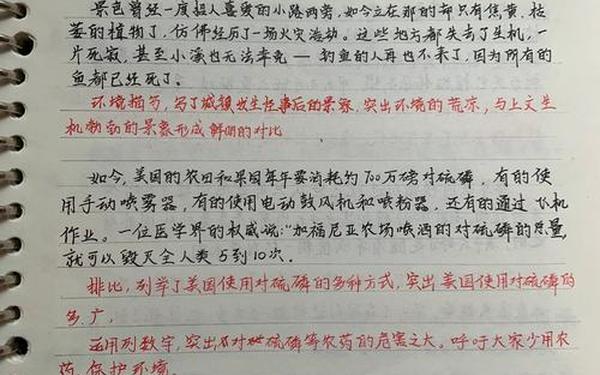 景色曾经一度招人喜爱的小路两旁，如今立在那的却只有焦黄、枯
萎的植物了，仿佛经历了一场火灾浩劫。这些地方都失去了生机，一
片死寂，甚至小溪也无法幸免—钓鱼的人再也不来了，因为所有的
鱼都已经死了。
环境描写，写了城镇发生怪事后的景象，突出环境的荒凉，与上文生
机勃勃的景象形成鲜明的对比
如今，美国的农田和果园每年要消耗约700万磅对硫磷，有的使
用手动喷雾器，有的使用电动鼓风机和喷粉器，还有的通过飞机
作业。一位医学界的权威说："加福尼亚农场喷洒的对硫磷的总量，
就可以毁灭全人类5到10次。
排比，列举了美国使用对硫磷的多种方式，突出美国使用对硫磷的
多、广。
运用列数字，突出对硫磷等农药的危害之大。呼吁大家少用农
药，保护环境。